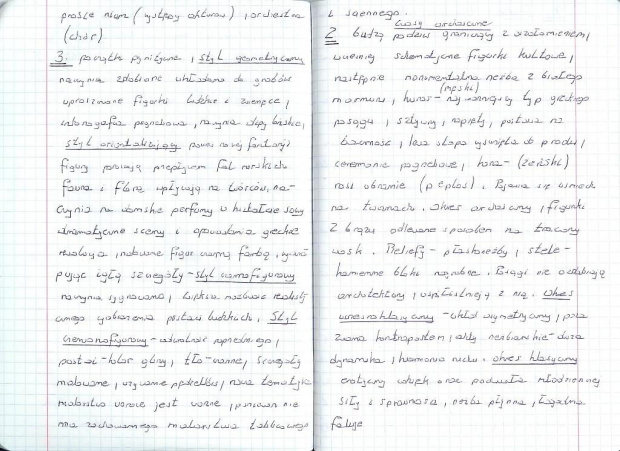 proskenion (występy aktorów), orchestra
(chór)
3. początki prymitywne, styl geometryczny
naczynia zdobione wkładano do grobów
uproszczone figurki ludzkie i zwierzęce,
ikonografia pogrzebowa, naczynia
styl orientalizujący powiew nowej fantazji
figury pokrywają prężyzm fal morskich
fauna i flora wpływają na twórców, na-
czynia na damskie perfumy w kształcie sowy
dramatyczne sceny i opowiadania greckie
rewolucja, malowane figur czarną farbą, wydra-
pując igłą szczegóły - styl czarnofigurowy
naczynia sygnowane, większa możliwość realisty
cznego wyobrażenia postaci ludzkich. Styl
czerwonofigurowy - odwrotność poprzedniego,
postaci - kolor gliny, tło - czarne, szczegóły
malowane, używanie pędzelków, nowa tematyka
malarstwo wazowe jest ważne, ponieważ nie
ma zachowanego malarstwa tablicowego
i ściennego.
okresy archaiczne
2. budzą podziw graniczący z oszołomieniem,
wcześniej schematyczne figurki kultowe,
następnie monumentalna rzeźba z białego
marmuru, kuros - (męski) najważniejszy typ greckiego
posągu, sztywny, napięty, postawa na
baczność, lewa stopa wysunięta do przodu,
ceremonie pogrzebowe, kora - (żeński)
nosi ubranie (peplos). Pojawia się uśmiech
na twarzach. Okres archaiczny, figurki
z brązu odlewane sposobem na tracony
wosk. Reliefy - płaskorzeźby, stele -
kamienne bloki nagrobne. Posągi nie ozdabiają
architektury, współistnieją z nią. Okres
wczesnoklasyczny - układ asymetryczny, poza
zwana kontrapostem, akty niebiańskie - duża
dynamika, harmonia ruchu. Okres klasyczny
erotyczny wdzięk oraz pochwała młodzieńczej
siły i sprawności, rzeźba płynna, łagodna
faluje